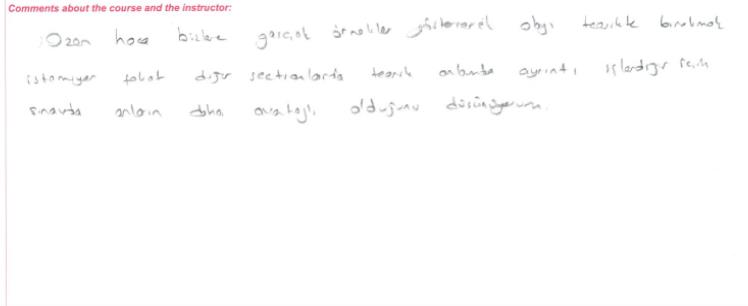 Comments about the course and the instructor:
Ozan hoca bizlere gerçek örnekler göstererek olayı teorikte bırakmak
istemiyor fakat diğer sectionlarda teorik anlamda ayrıntı işlendiği için
sınavda onların daha avantajlı olduğunu düşünüyorum.